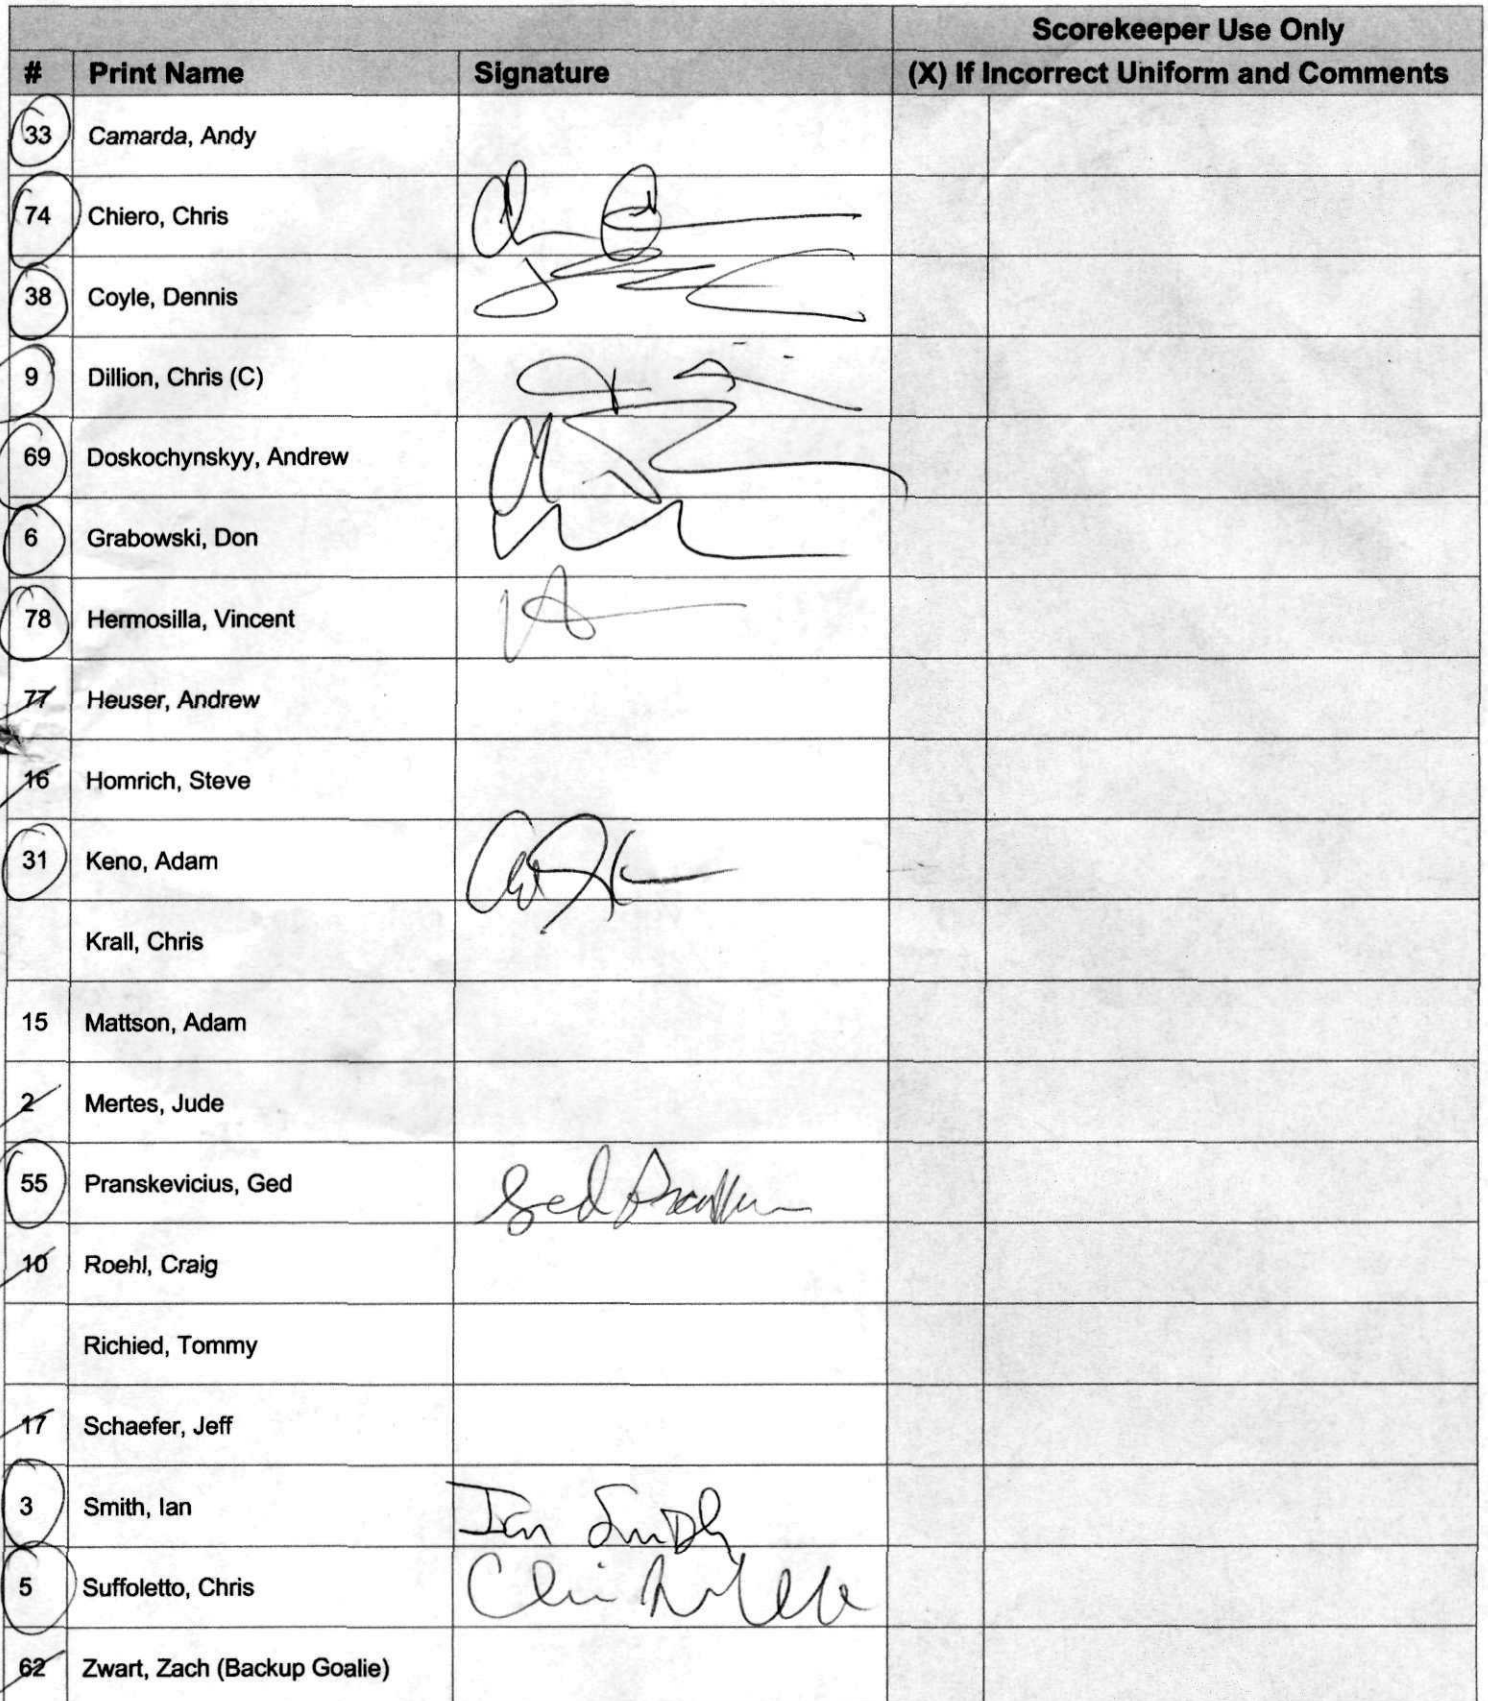 Scorekeeper Use Only
# Print Name Signature (X) If Incorrect Uniform and Comments
33 Camarda, Andy
74 Chiero, Chris
38 Coyle, Dennis
9 Dillion, Chris (C)
69 Doskochynskyy, Andrew
6 Grabowski, Don
78 Hermosilla, Vincent
77 Heuser, Andrew
16 Homrich, Steve
31 Keno, Adam
Krall, Chris
15 Mattson, Adam
2 Mertes, Jude
55 Pranskevicius, Ged Ged
10 Roehl, Craig
Richied, Tommy
17 Schaefer, Jeff
3 Smith, Ian Ian Smith
5 Suffoletto, Chris
62 Zwart, Zach (Backup Goalie)